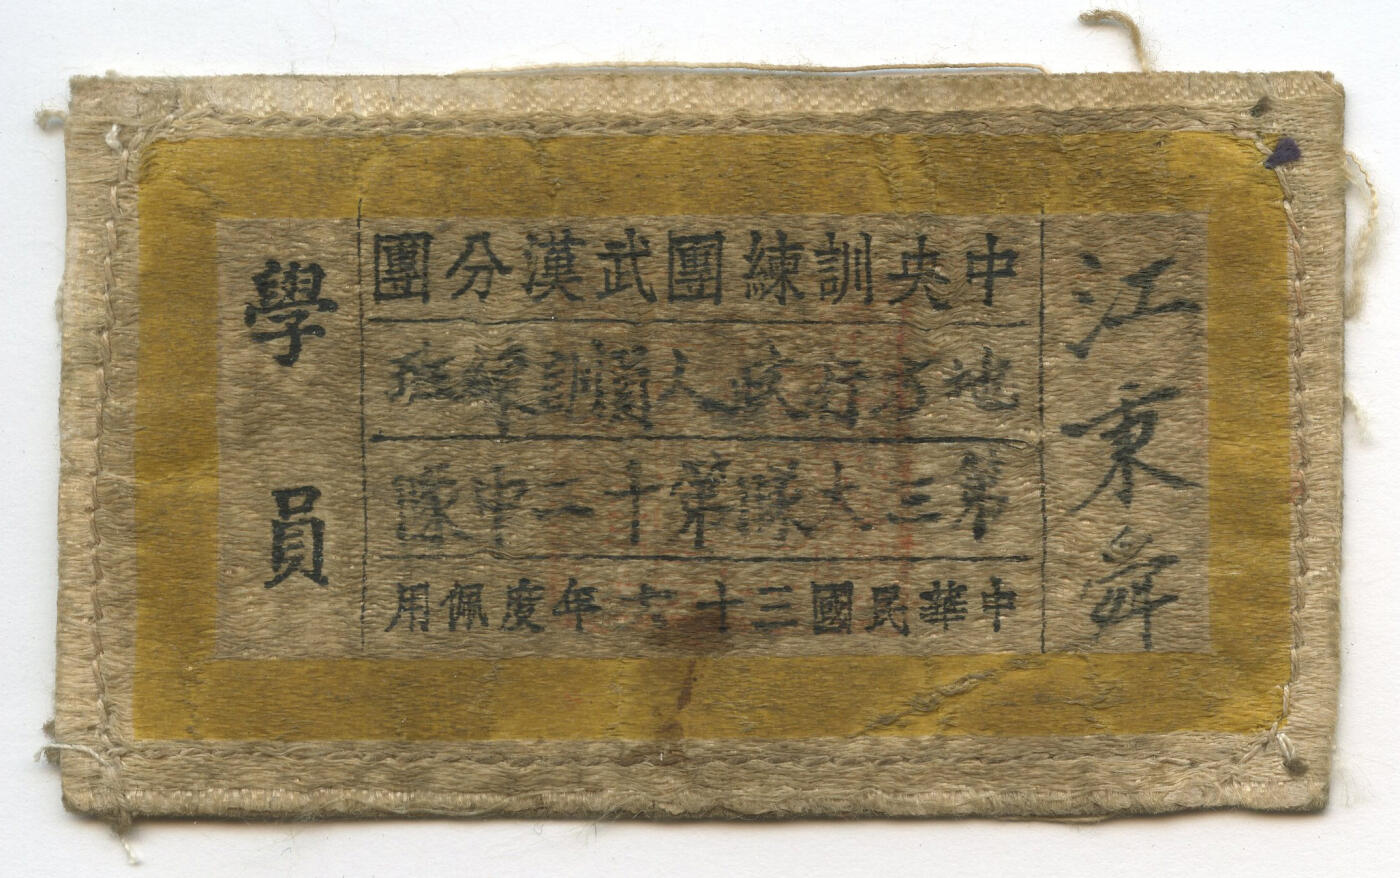 江秉舜
中央訓練團武漢分團
地方行政人員訓練班
第三大隊第十二中隊
中華民國三十六年度佩用
學員